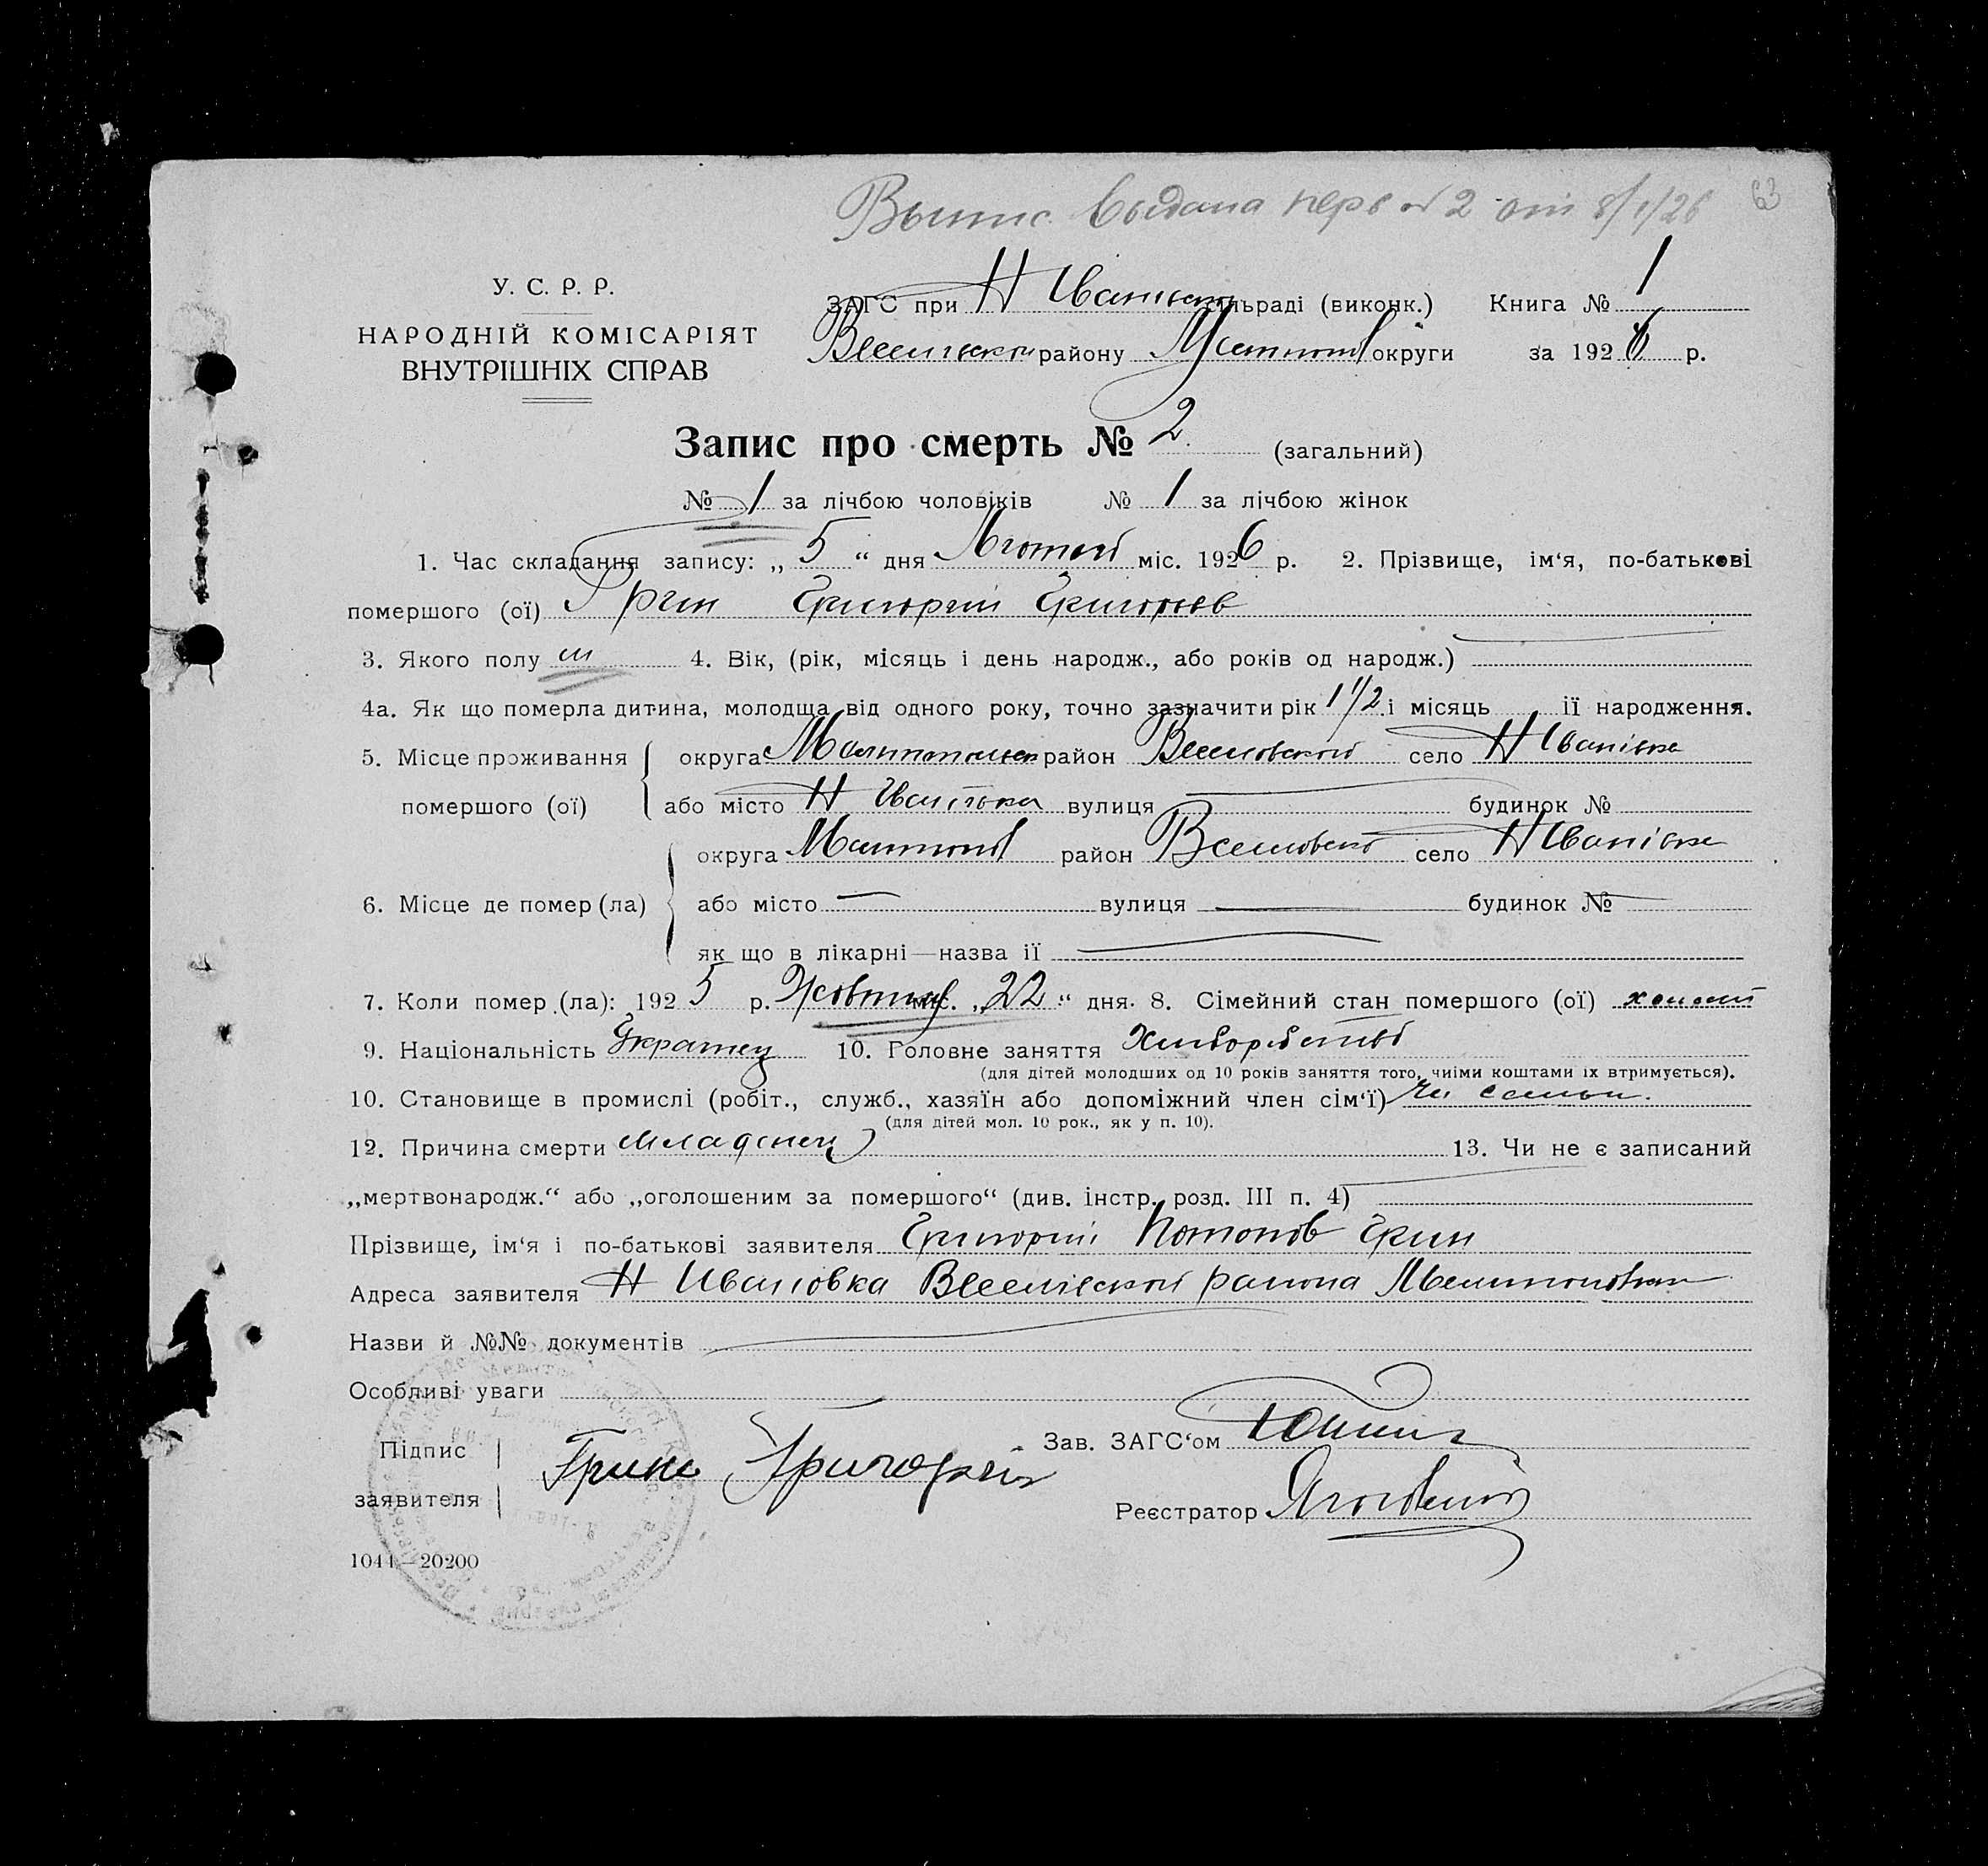 Выпис. выдана перв № 2 от 8/1/26 63
У. С. Р. Р.
НАРОДНІЙ КОМІСАРІЯТ
ВНУТРІШНІХ СПРАВ
ЗАГС при Н Іванівск сільраді (виконк.) Книга № 1
району округи за 1926 р.
Запис про смерть № 2. (загальний)
№ 1 за лічбою чоловіків № 1 за лічбою жінок
1. Час складання запису: „ 5 “ дня Лютого міс. 1926 р. 2. Прізвище, ім‘я, по-батькові
помершого (ої) Грин Григорий Григорьев
3. Якого полу м 4. Вік, (рік, місяць і день народж., або років од народж.)
4а. Як що померла дитина, молодща від одного року, точно зазначити рік 1 1/2 і місяць її народження.
5. Місце проживання округа район село Н Іванівка
помершого (ої) або місто Н Іванівка вулиця — будинок №
округа район село Н Іванівка
6. Місце де помер (ла) або місто — вулиця — будинок № —
як що в лікарні—назва її —
7. Коли помер (ла): 1925 р. Жовтня міс. „22“ дня. 8. Сімейний стан помершого (ої) холост
9. Національність Украинец 10. Головне заняття
(для дітей молодших од 10 років заняття того, чиїми коштами їх втримується).
10. Становище в промислі (робіт., служб., хазяїн або допоміжний член сім‘ї) чл семьи.
(для дітей мол. 10 рок., як у п. 10).
12. Причина смерти младенец 13. Чи не є записаний
„мертвонародж.“ або „оголошеним за помершого“ (див. інстр. розд. III п. 4)
Прізвище, ім‘я і по-батькові заявителя Григорий Потопов Грин
Адреса заявителя Н Ивановка района
Назви й №№ документів
Особливі уваги
Підпис
заявителя Грин Григорий
Зав. ЗАГС‘ом
Реєстратор
1044—20200